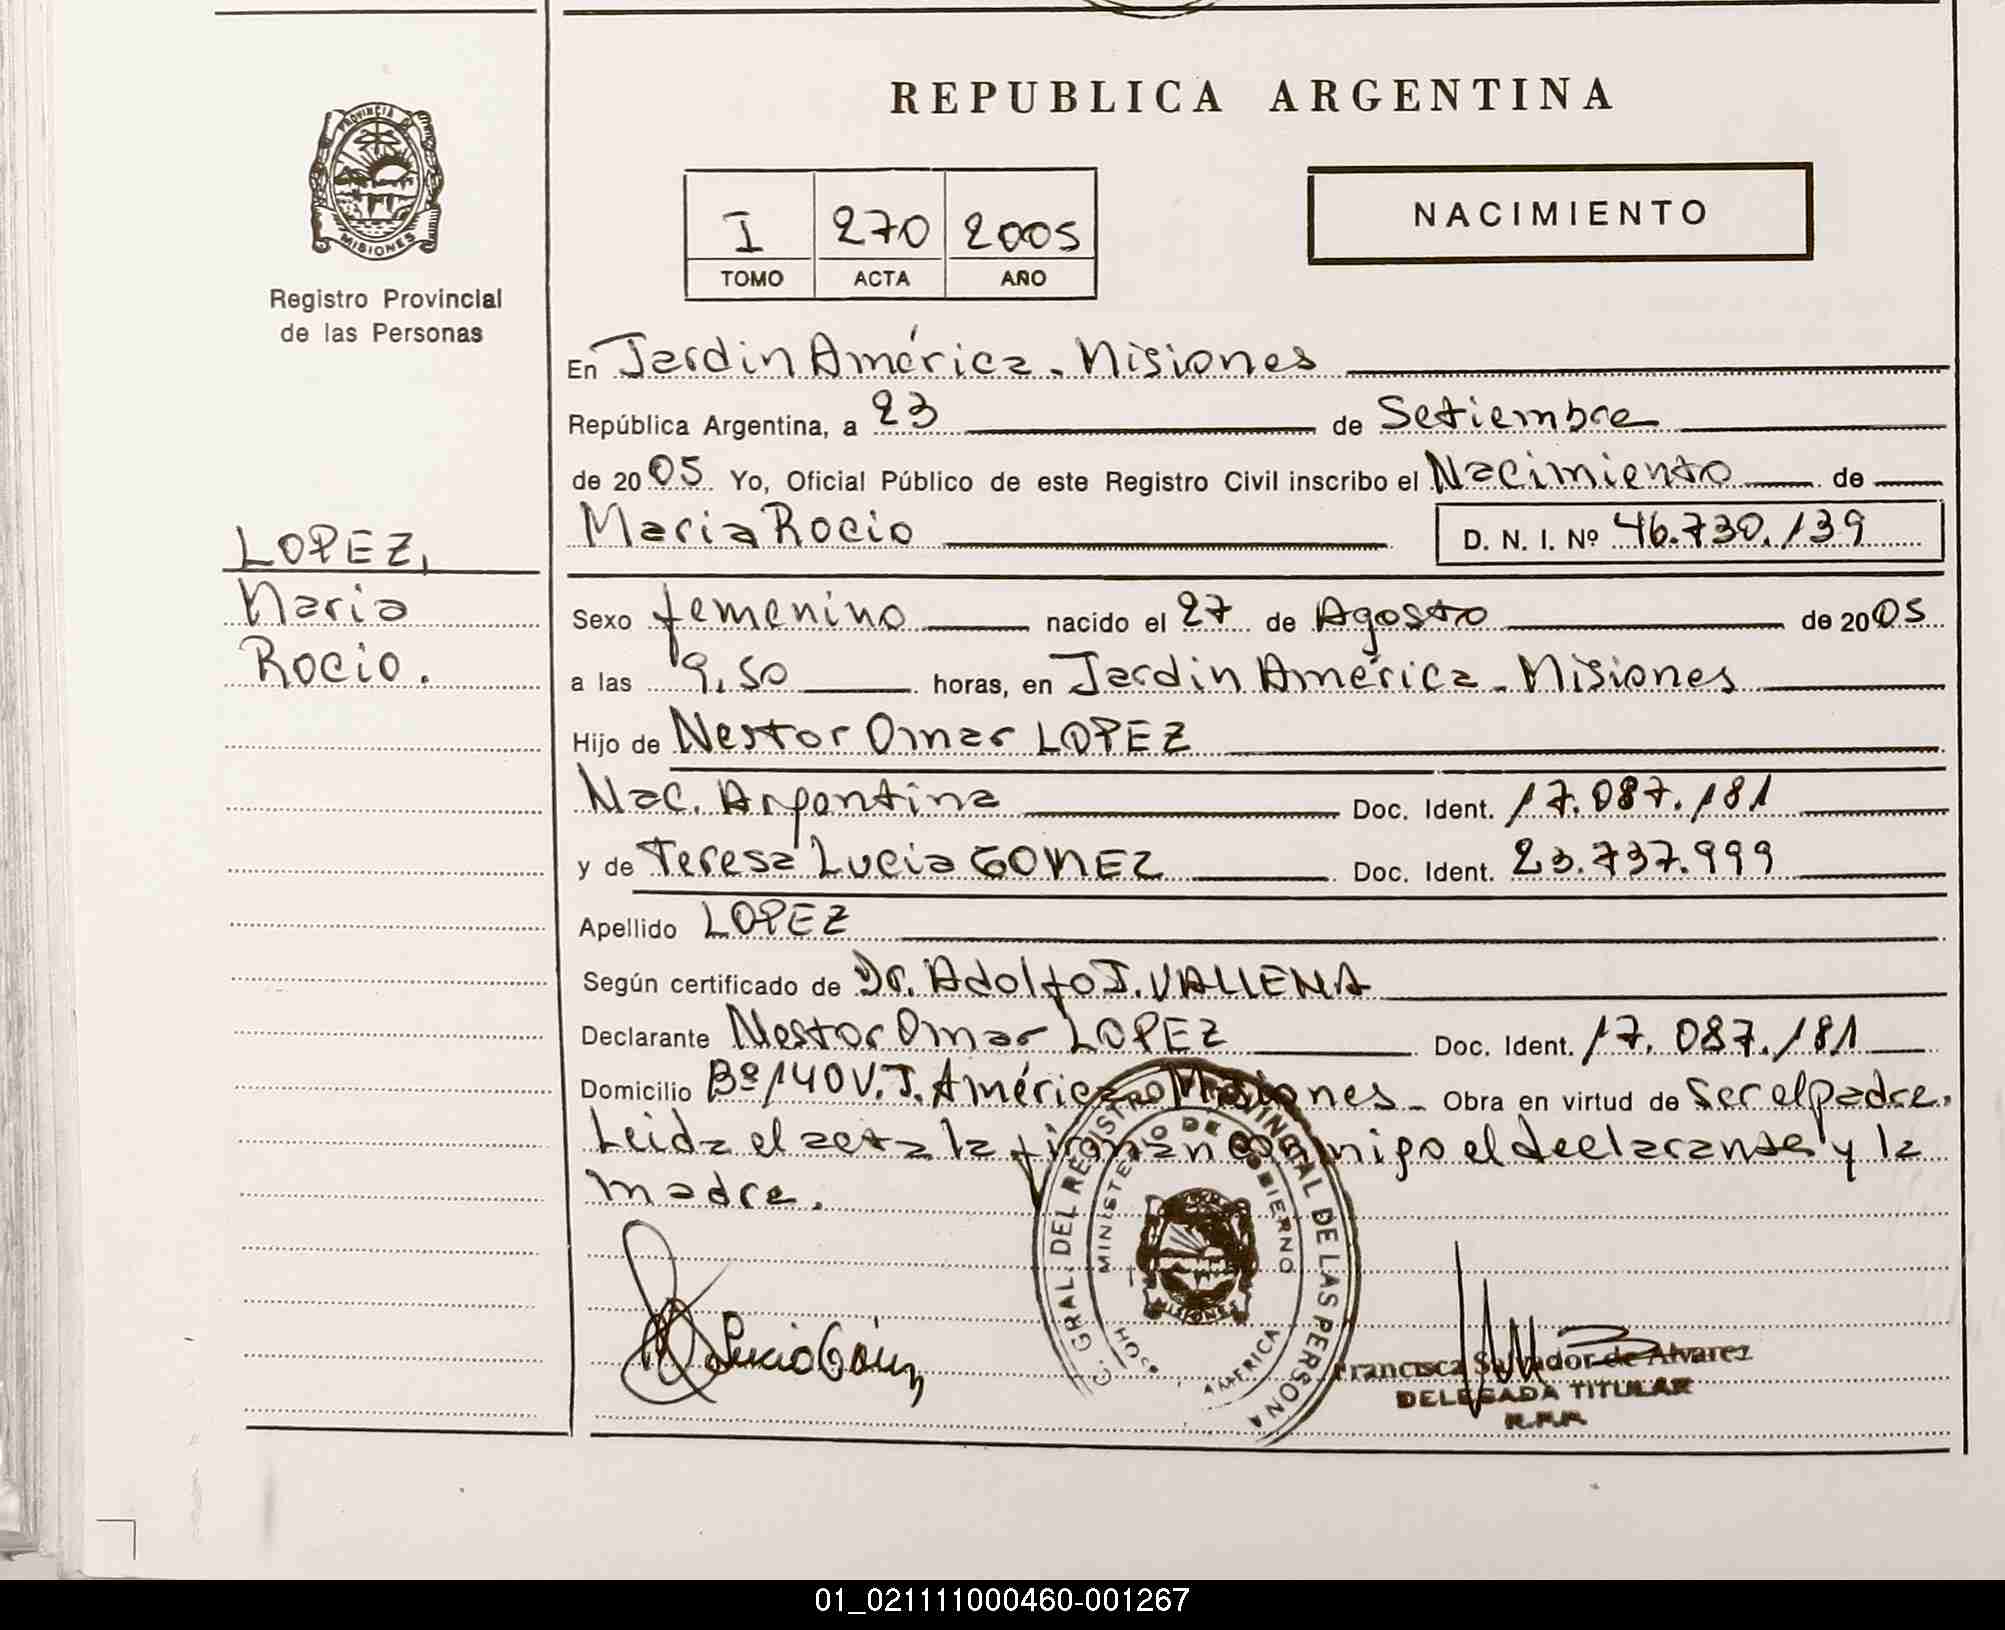 REPUBLICA ARGENTINA
PROVINCIA DE
MISIONES
Registro Provincial
de las Personas
I 270 2005
TOMO ACTA AÑO
NACIMIENTO
En Jardin América - Misiones
República Argentina, a 23 de Setiembre
de 2005 Yo, Oficial Público de este Registro Civil inscribo el Nacimiento de
Maria Rocio D. N. I. Nº 46.730.139
LOPEZ,
Maria
Rocio.
Sexo femenino nacido el 27 de Agosto de 2005
a las 9,50 horas, en Jardin América - Misiones
Hijo de Nestor Omar LOPEZ
Nac. Argentina Doc. Ident. 17.087.181
y de Teresa Lucia GOMEZ Doc. Ident. 23.737.999
Apellido LOPEZ
Según certificado de Dr. Adolfo J. VALLENA
Declarante Nestor Omar LOPEZ Doc. Ident. 17.087.181
Domicilio Bº 140 V. J. América Misiones - Obra en virtud de Ser el padre.
Leida el acta la firman conmigo el declarante y la
madre.
GRAL. DEL REGISTRO PROVINCIAL DE LAS PERSONA
MINISTERIO DE GOBIERNO
MISIONES
AMERICA
Francisca Salvador de Alvarez
DELEGADA TITULAR
01_021111000460-001267